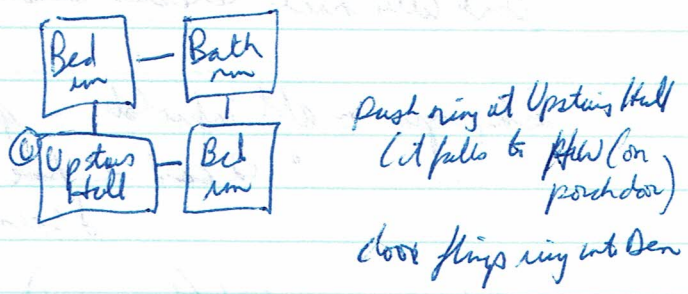 Bed
rm
Bath
rm
U
Upstairs
Hall
Bed
rm
push ring at Upstairs Hall
(it falls to (on
porch door)
door flings ring into Den